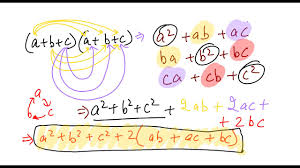 (a+b+c) (a+b+c) ⇒ a² + ab + ac
ba + b² + bc
ca + cb + c²
a
b c
⇒ a² + b² + c² + 2ab + 2ac
+ 2bc
⇒ a² + b² + c² + 2(ab + ac + bc)